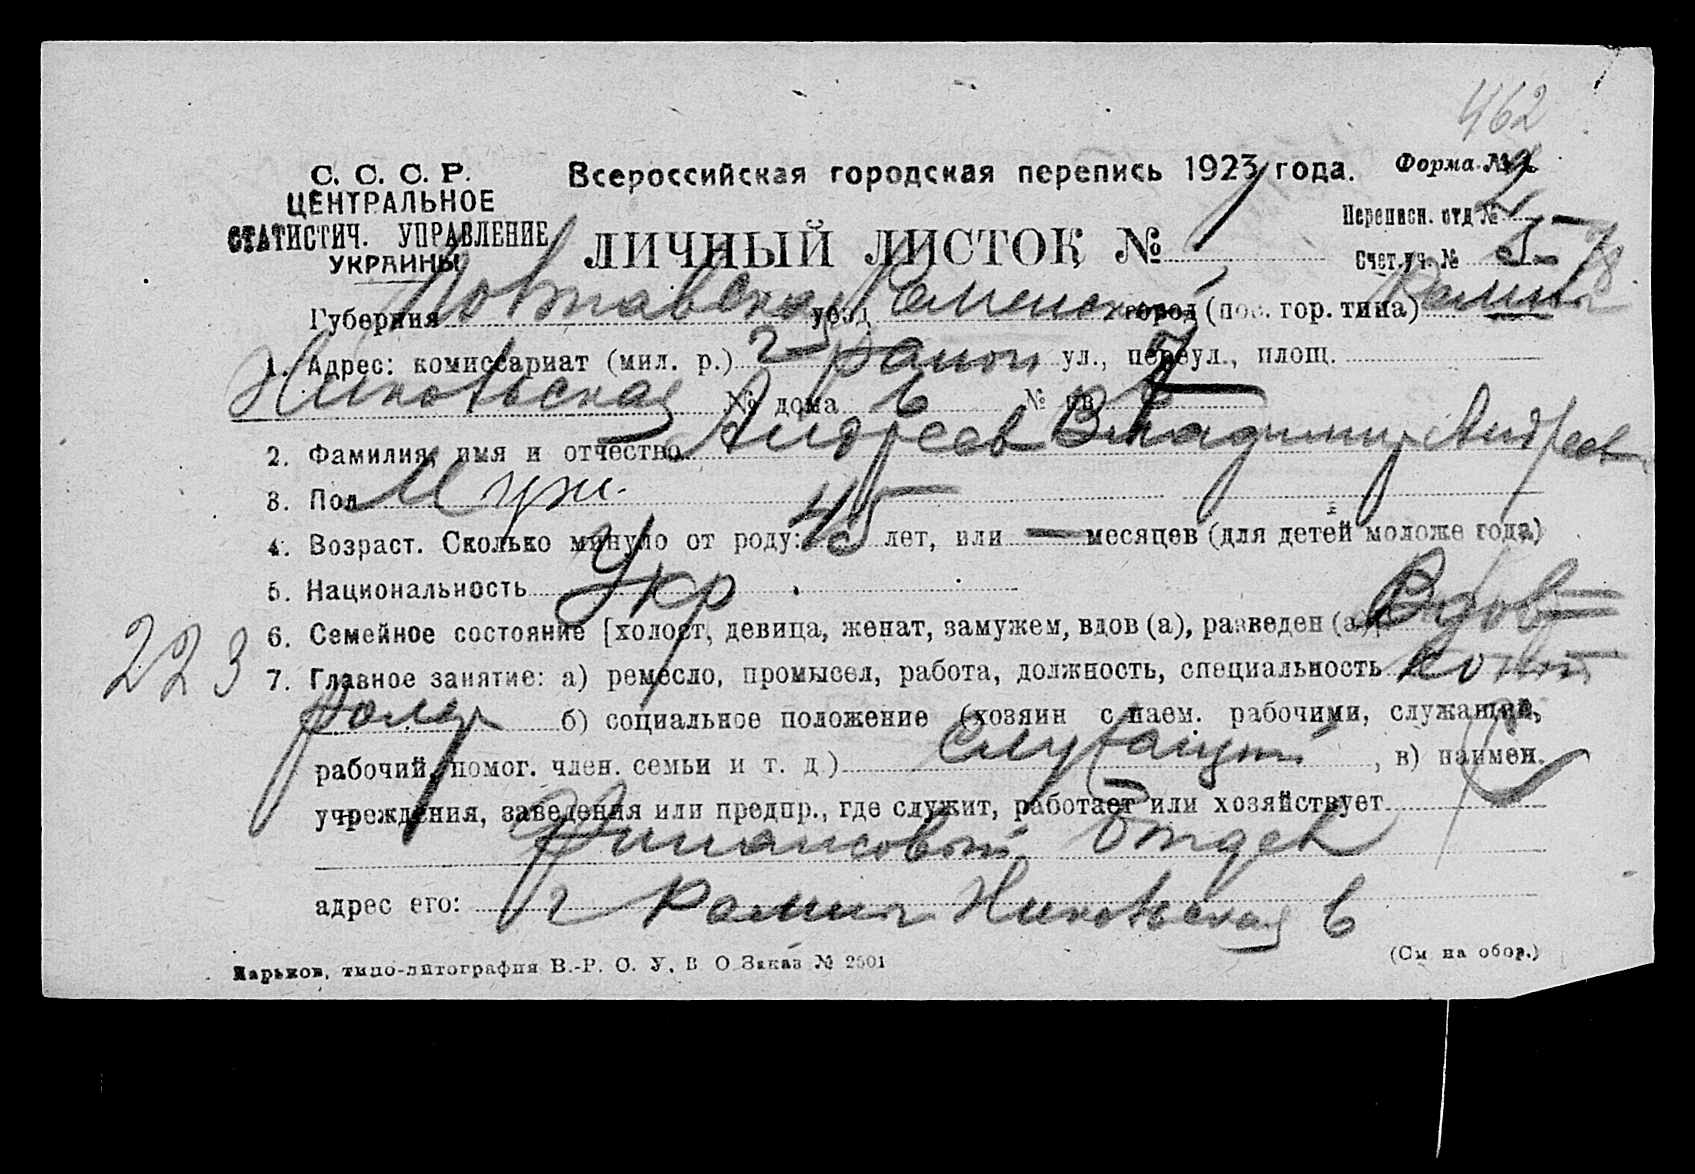 462
С. С. С. Р. Всероссийская городская перепись 1923 года. Форма № 2
ЦЕНТРАЛЬНОЕ
СТАТИСТИЧ. УПРАВЛЕНИЕ
УКРАИНЫ
Переписн. отд №
ЛИЧНЫЙ ЛИСТОК №
Счет. уч. №
Губерния Полтавская уезд Роменск город (пос. гор. типа) Ромны
1. Адрес: комиссариат (мил. р.) 2 район ул., переул., площ.
№ дома 6 № кв
2. Фамилия, имя и отчество Андреев Владимир Андреев
3. Пол Муж.
4. Возраст. Сколько минуло от роду: 45 лет, или — месяцев (для детей моложе года)
5. Национальность Укр
6. Семейное состояние [холост, девица, женат, замужем, вдов (а), разведен (а)] Вдов
223
7. Главное занятие: а) ремесло, промысел, работа, должность, специальность Конт
ролер б) социальное положение (хозяин с наем. рабочими, служащий,
рабочий, помог. член. семьи и т. д.) Служащий, в) наимен.
учреждения, заведения или предпр., где служит, работает или хозяйствует
Финансовый Отдел
адрес его: г Ромны 6
Харьков, типо-литография В.-Р. О. У. В О Заказ № 2501 (См на обор.)